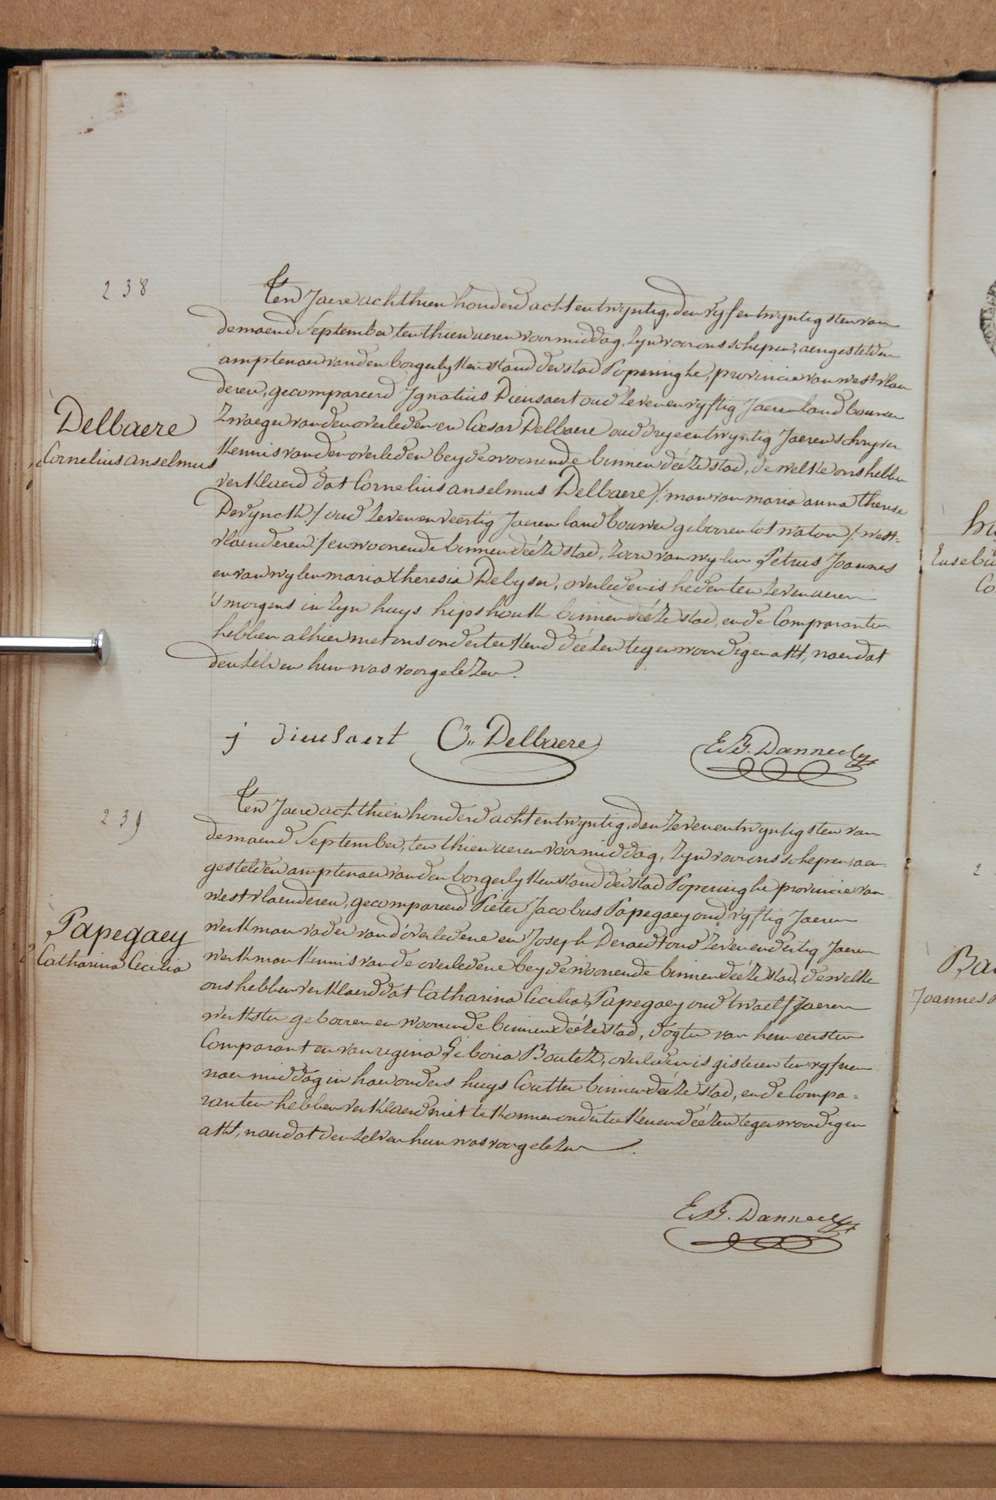 238
Ten Jaere achthien honderd achtentwyntig, den vyfentwyntigsten van
de maend September, ten thien ueren voormiddag, Zyn voor ons schepen, aengestelden
amptenaer van den borgerlyken stand der stad Poperinghe, provincie van westvlaen
deren, gecompareerd Ignatius Dieusaert oud Zevenenvyftig Jaeren landbouwer
Delbaere
Zwager van den overleden en Cæsar Delbaere oud dryentwyntig Jaeren schryver
Cornelius anselmus
Kennis van den overleden beyde woonende binnen deéze stad, de welke ons hebben
verklaerd dat Cornelius anselmus Delbaere /man van maria anna therese
Derynck/ oud Zevenenveertig Jaeren landbouwer geboren tot watou /: west-
vlaenderen / en woonende binnen deéze stad, Zoon van wylen Petrus Joannes
en van wylen maria theresia Delyser, overleden is heden ten Zeven ueren
's morgens in Zyn huys hipshoutk binnen deéze stad, en de Comparanten
hebben alhier met ons onderteekend deézen tegenwoordigen akt, naer dat
den Zelven hun was voorgelezen.
j dieusaert C:: Delbaere E. B. Danneel
239
Ten Jaere achtthien honderd achtentwyntig, den Zevenentwyntigsten van
de maend September, ten thien ueren voormiddag, Zyn voor ons schepen, aen
gestelden amptenaer van den borgerlyken stand der stad Poperinghe provincie van
westvlaenderen, gecompareerd Pieter Jacobus Papegaey oud vyftig Jaeren
Papegaey
werkman vader van d'overledene en Joseph Deraedt oud Zevenendertig Jaeren
Catharina Cecilia
werkman Kennis van de overledene beyde woonende binnen deéze stad, de welke
ons hebben verklaerd dat Catharina Cecilia Papegaey oud twaelf Jaeren
werkster geboren en woonende binnen deéze stad, dogter van hem eersten
Comparant en van regina Liboria Boutez, overleden is gisteren ten vyf ueren
naermiddag in haer ouders huys Coutter binnen deéze stad, en de Compa-
ranten hebben verklaerd niet te Konnen onderteekenen deézen tegenwoordigen
akt, naer dat den Zelven hun was voorgelezen.
E. B. Danneel